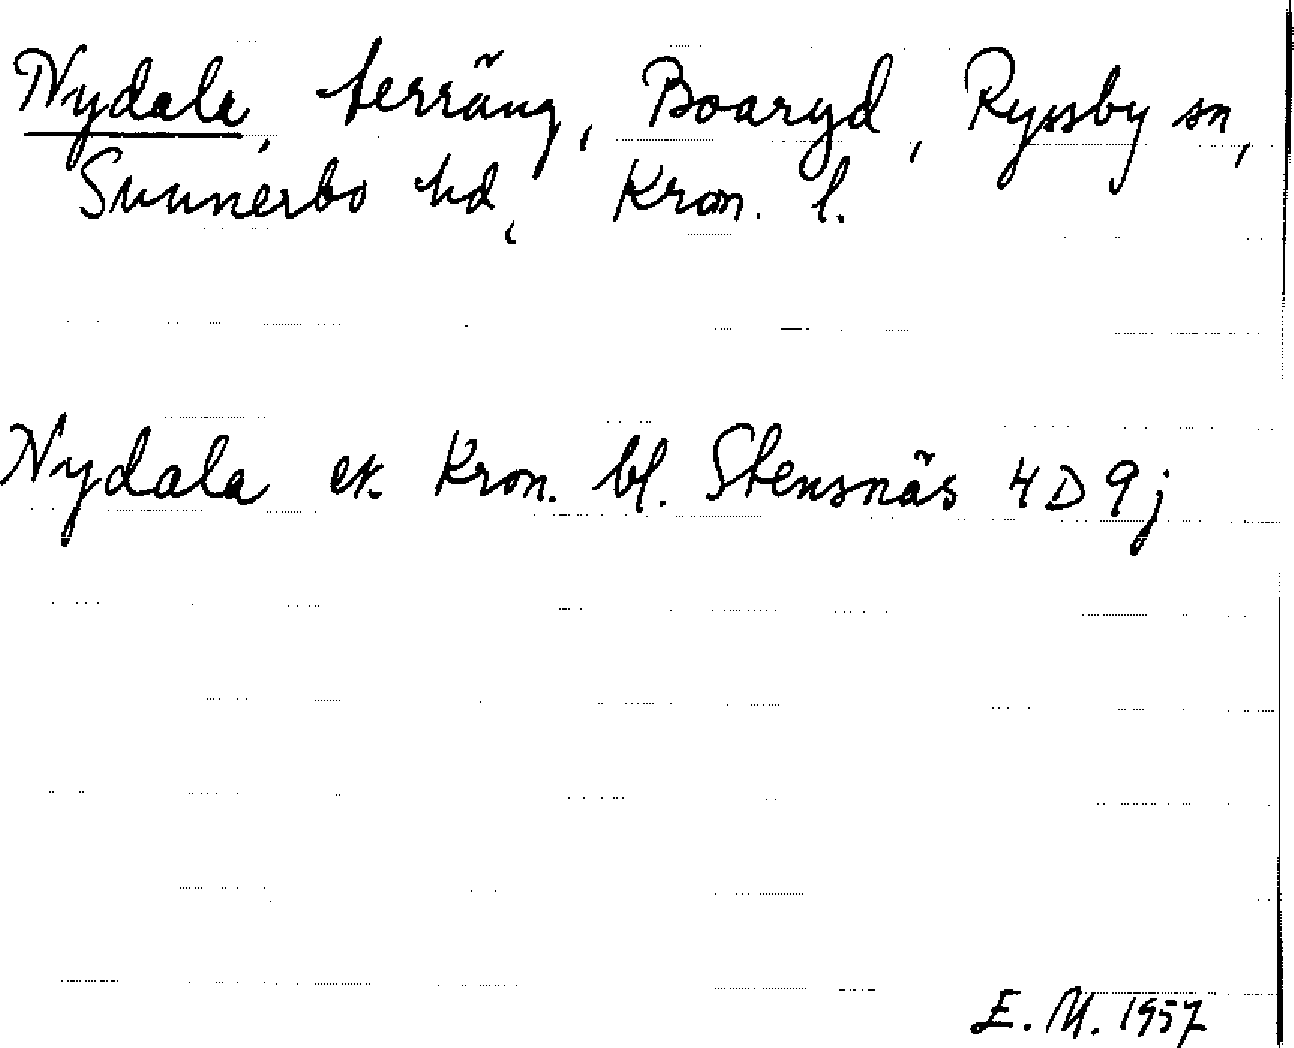 Nydala, terräng, Boaryd, Ryssby sn,
Sunnerbo hd, Kron. l.
Nydala ek. Kron. bl. Stensnäs 4D9j
E.M. 1957